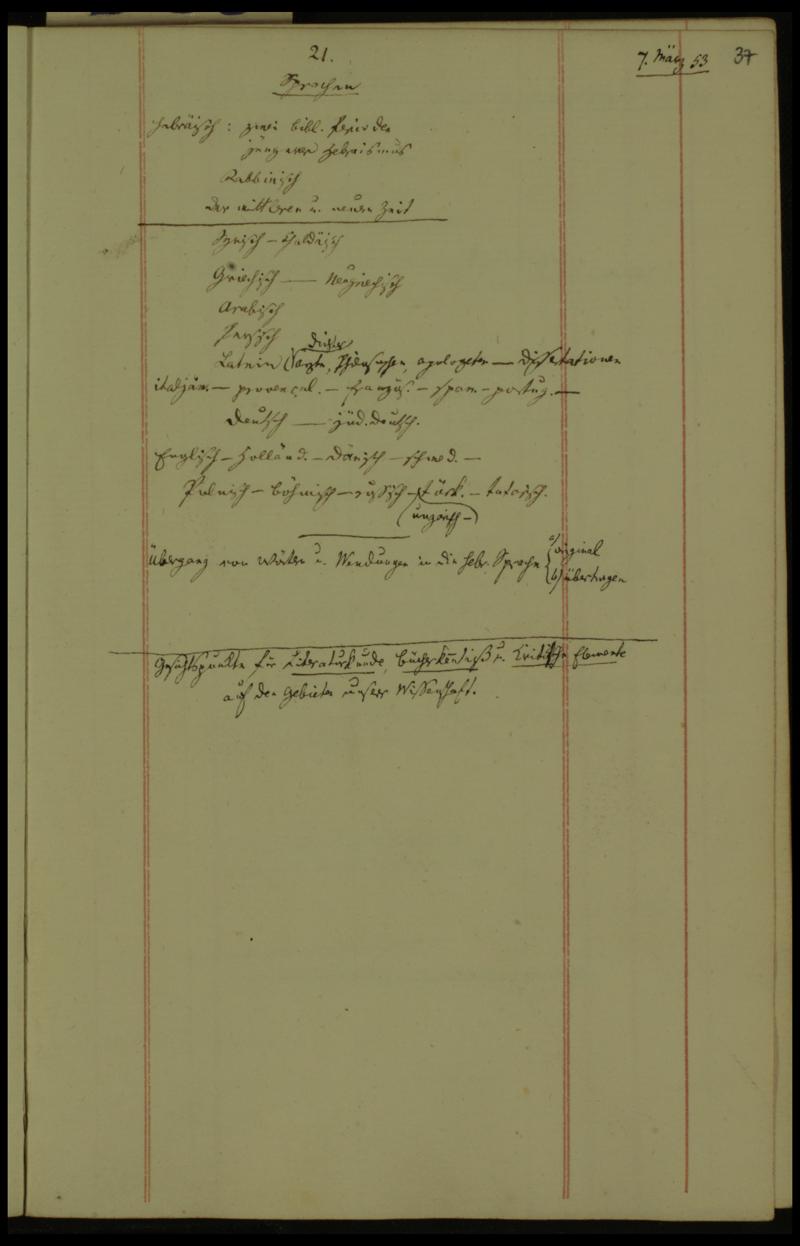 21.
7. März 53
37
Sprachen
Hebräisch: zwei bibl. Perioden
jüngerer Hebraismus
Rabbinisch
der mittleren u. neuen Zeit
Syrisch – Chaldäisch
Griechisch — Neugriechisch
Arabisch
Persisch
Dichter
Latein (Ärzte, Philosophen, Apologeten — Dissertationen
italiän. — provençal. — französ. — span. – portug. —
Deutsch — jüd. deutsch.
Englisch – Holländ. – Dänisch – schwed. —
Polnisch – böhmisch – russisch – türk. – tatarisch.
(ungarisch –)
Übergang von Wörtern u. Wendungen in die hebr. Sprache
a) original
b) übertragen
Gesichtspunkte für Literaturkunde, Bücherkenntniß u. Kritische Elemente
auf den Gebieten unserer Wissenschaft.